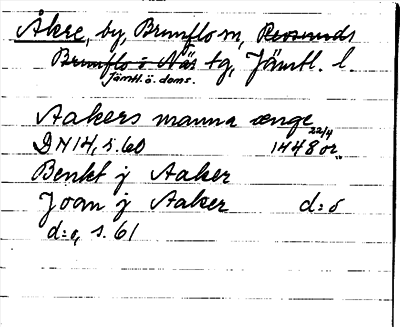 Åkre, by, Brunflo sn, Revsunds
Brunflo o. När tg, Jämtl. l.
Jämtl. ö. doms.
Aakers manna ænge
22/4
DN 14, s. 60 1448 or.
Benkt j Aaker
Joan j Aaker d:o
d:o, s. 61